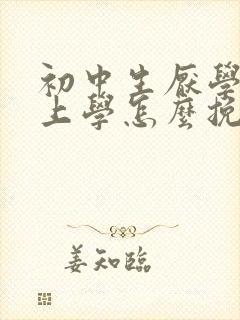 初中生厭學
上學怎麼挽
姜知臨